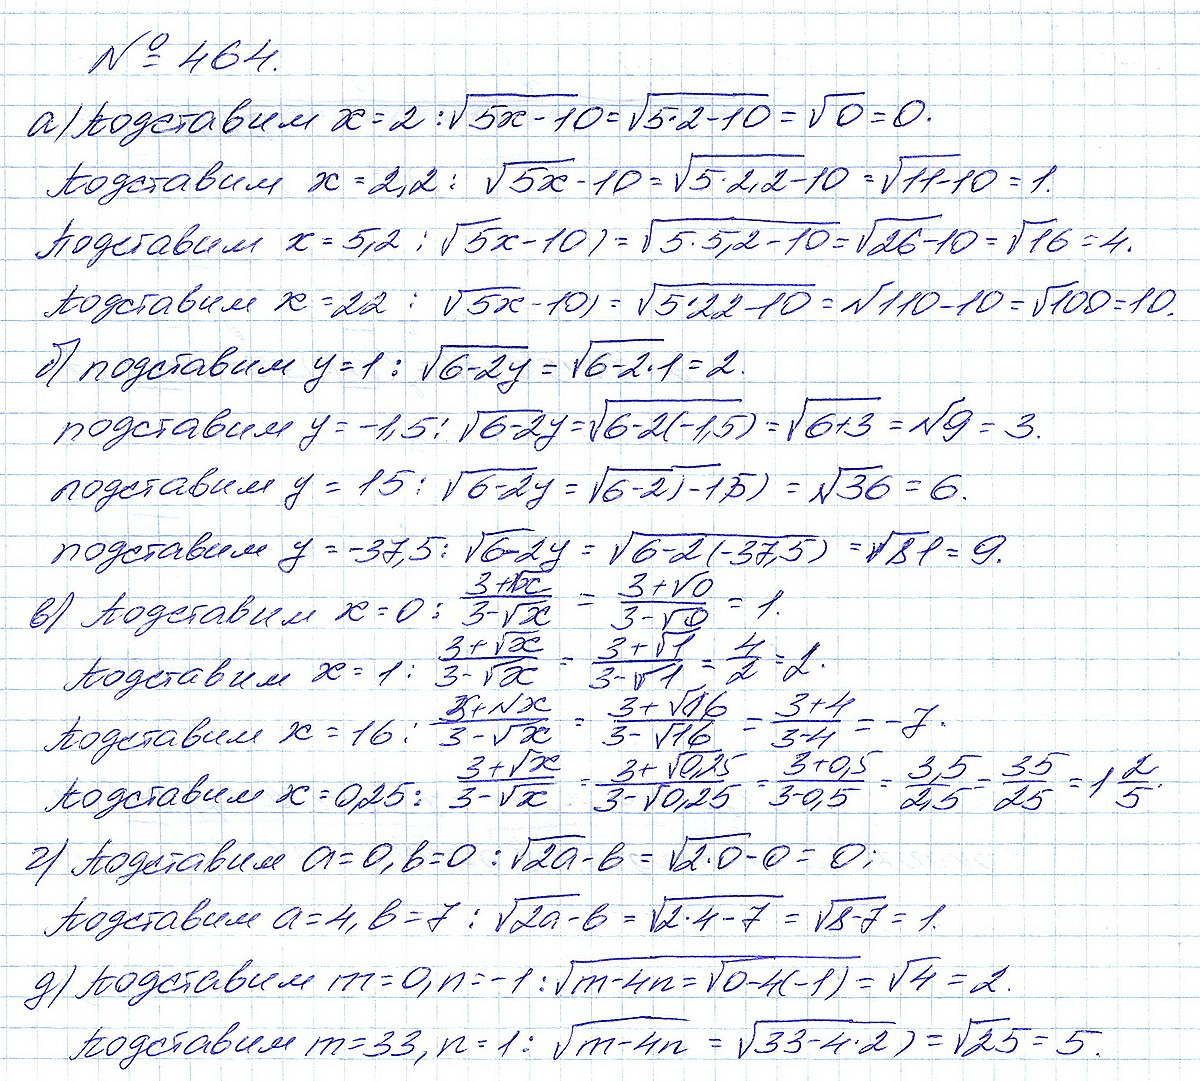 № 464.
а) Подставим x = 2 : √5x-10 = √5·2-10 = √0 = 0.
Подставим x = 2,2 : √5x-10 = √5·2,2-10 = √11-10 = 1.
Подставим x = 5,2 : √5x-10) = √5·5,2-10 = √26-10 = √16 = 4.
Подставим x = 22 : √5x-10) = √5·22-10 = √110-10 = √100 = 10.
б) подставим y = 1 : √6-2y = √6-2·1 = 2.
подставим y = -1,5 : √6-2y = √6-2(-1,5) = √6+3 = √9 = 3.
подставим y = 15 : √6-2y = √6-2)-15) = √36 = 6.
подставим y = -37,5 : √6-2y = √6-2(-37,5) = √81 = 9.
в) Подставим x = 0 : 3+√x/3-√x = 3+√0/3-√0 = 1.
Подставим x = 1 : 3+√x/3-√x = 3+√1/3-√1 = 4/2 = 2.
Подставим x = 16 : 3+√x/3-√x = 3+√16/3-√16 = 3+4/3-4 = -7.
Подставим x = 0,25 : 3+√x/3-√x = 3+√0,25/3-√0,25 = 3+0,5/3-0,5 = 3,5/2,5 = 35/25 = 1 2/5.
г) Подставим a = 0, b = 0 : √2a-b = √2·0-0 = 0;
Подставим a = 4, b = 7 : √2a-b = √2·4-7 = √8-7 = 1.
д) Подставим m = 0, n = -1 : √m-4n = √0-4(-1) = √4 = 2.
Подставим m = 33, n = 1 : √m-4n = √33-4·2) = √25 = 5.